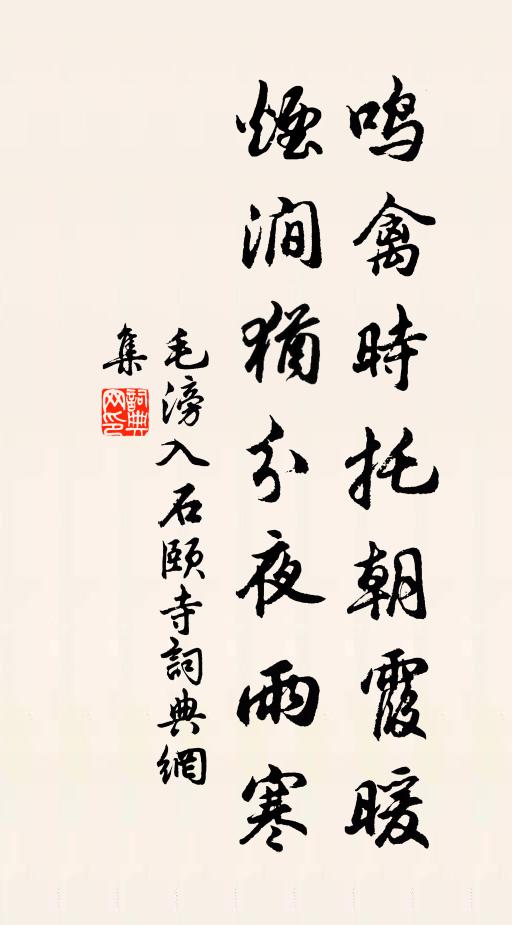 鸣禽時托朝霞暖
煙澗猶分夜雨寒
毛滂入石頤寺詞典網
集
詞典网印